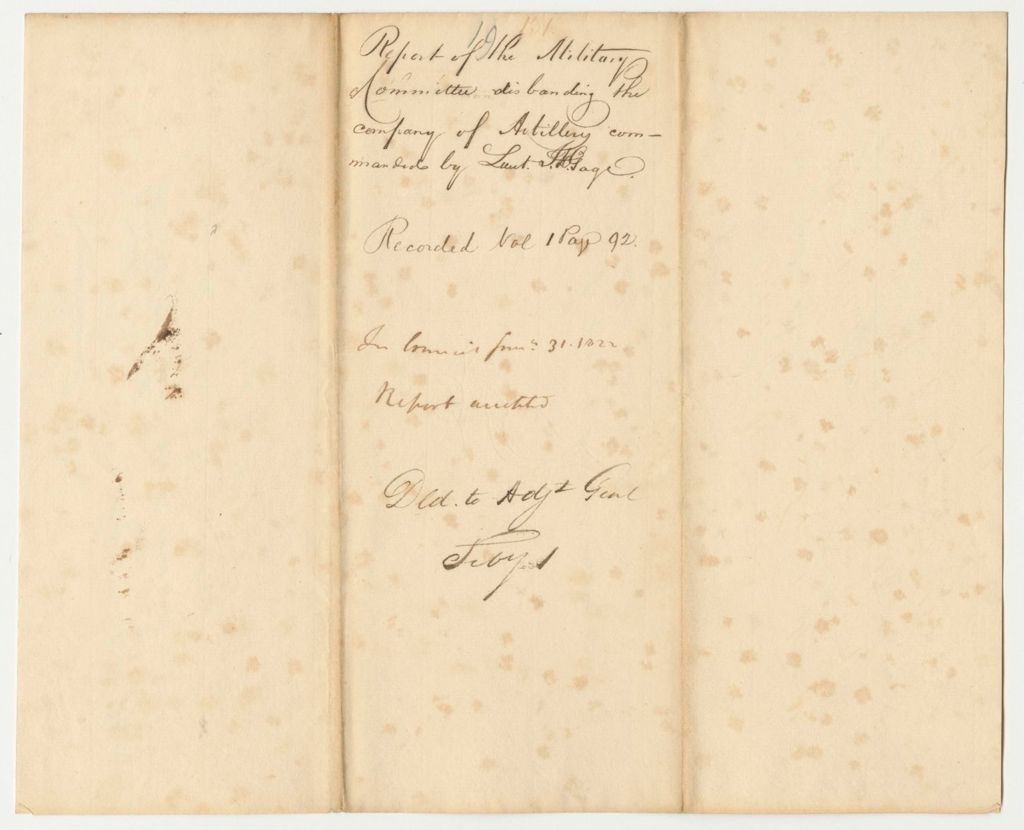 Report of the Military
Committee disbanding the
company of Artillery com-
manded by Lieut. Gage.
Recorded Vol 1 Page 92.
In Council Jany 31. 1822
Report accepted
Dld. to Adjt Genl
Feby 1